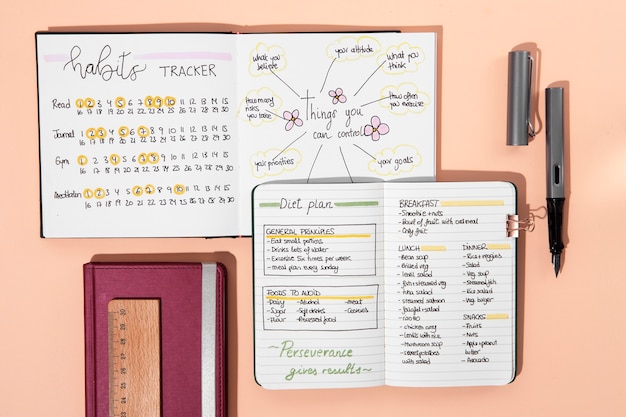 habits TRACKER
Read 1 2 3 4 5 6 7 8 9 10 11 12 13 14 15
16 17 18 19 20 21 22 23 24 25 26 27 28 29 30
Journal 1 2 3 4 5 6 7 8 9 10 11 12 13 14 15
16 17 18 19 20 21 22 23 24 25 26 27 28 29 30
Gym 1 2 3 4 5 6 7 8 9 10 11 12 13 14 15
16 17 18 19 20 21 22 23 24 25 26 27 28 29 30
Meditation 1 2 3 4 5 6 7 8 9 10 11 12 13 14 15
16 17 18 19 20 21 22 23 24 25 26 27 28 29 30
what you
believe
your attitude
what you
think
How many
risks
you take
How often
you exercise
Things you
can control
your priorities
your goals
Diet plan
GENERAL PRINCIPLES
- Eat small portions
- Drinks lots of water
- Exercise six times per week
- Meal plan every sunday
FOODS TO AVOID
- Dairy - Alcohol - Meat
- Sugar - Soft drinks - Cookies
- Flour - Processed food
~Perseverance
gives results~
BREAKFAST
- Smoothie + nuts
- Bowl of fruit with oatmeal
- Only fruit
LUNCH
- Bean soup
- Baked veg
- lentil salad
- fish + steamed veg
- tuna salad
- steamed salmon
- salad
- risotto
- chicken curry
- Lentils with rice
- Mushroom soup
- potatoes
with salad
DINNER
- Rice + veggies
- Salad
- Veg. soup
- Steamed fish
- Rice salad
- Veg. burger
SNACKS
- Fruits
- Nuts
- Apple + peanut
butter
- Avocado